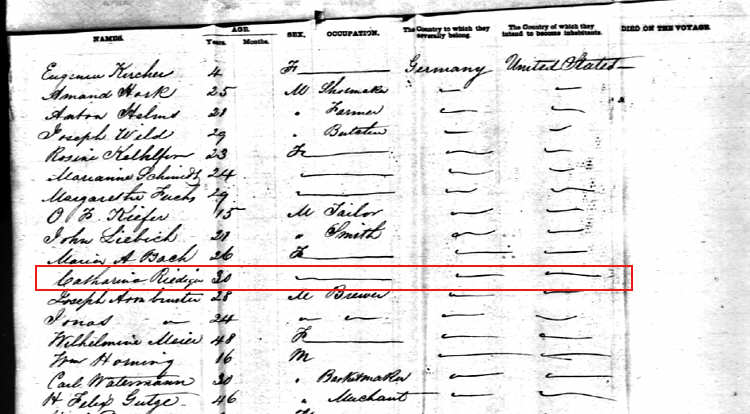 NAMES. AGE. Years. Months. SEX. OCCUPATION. The Country to which they severally belong. The Country of which they intend to become inhabitants. DIED ON THE VOYAGE.
Eugenia Kircher 4 F Germany United States
Amand Hork 25 M Shoemaker
Anton Helms 21 " Farmer
Joseph Wild 29 "
Rosine 23 F
Marianne Schmidt 24
Margarethe Fuchs 29
O F. Kiefer 15 M Tailor
John Liebich 28 " Smith
Maria A Bach 26 F
Catharina Riediger 30
Joseph Armbruster 28 M Brewer
Jonas " 24 " "
Wilhelmine Maier 48 F
Wm Horning 16 M
Carl Watermann 30 " Basketmaker
H Felix Gutge 46 " Merchant